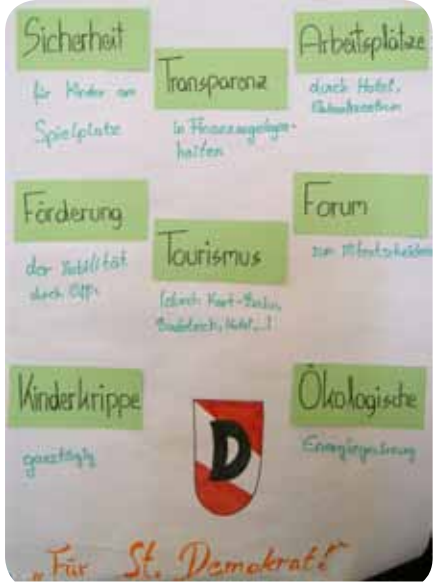 Sicherheit
für Kinder am
Spielplatz
Transparenz
in Finanzangelegen-
heiten
Arbeitsplätze
durch Hotel,
Förderung
der Mobilität
durch
Tourismus
(durch Kart-Bahn,
Badeteich, Hotel,..)
Forum
zum Mitentscheiden
Kinderkrippe
ganztägig
D
Ökologische
"Für St. Demokrat!"